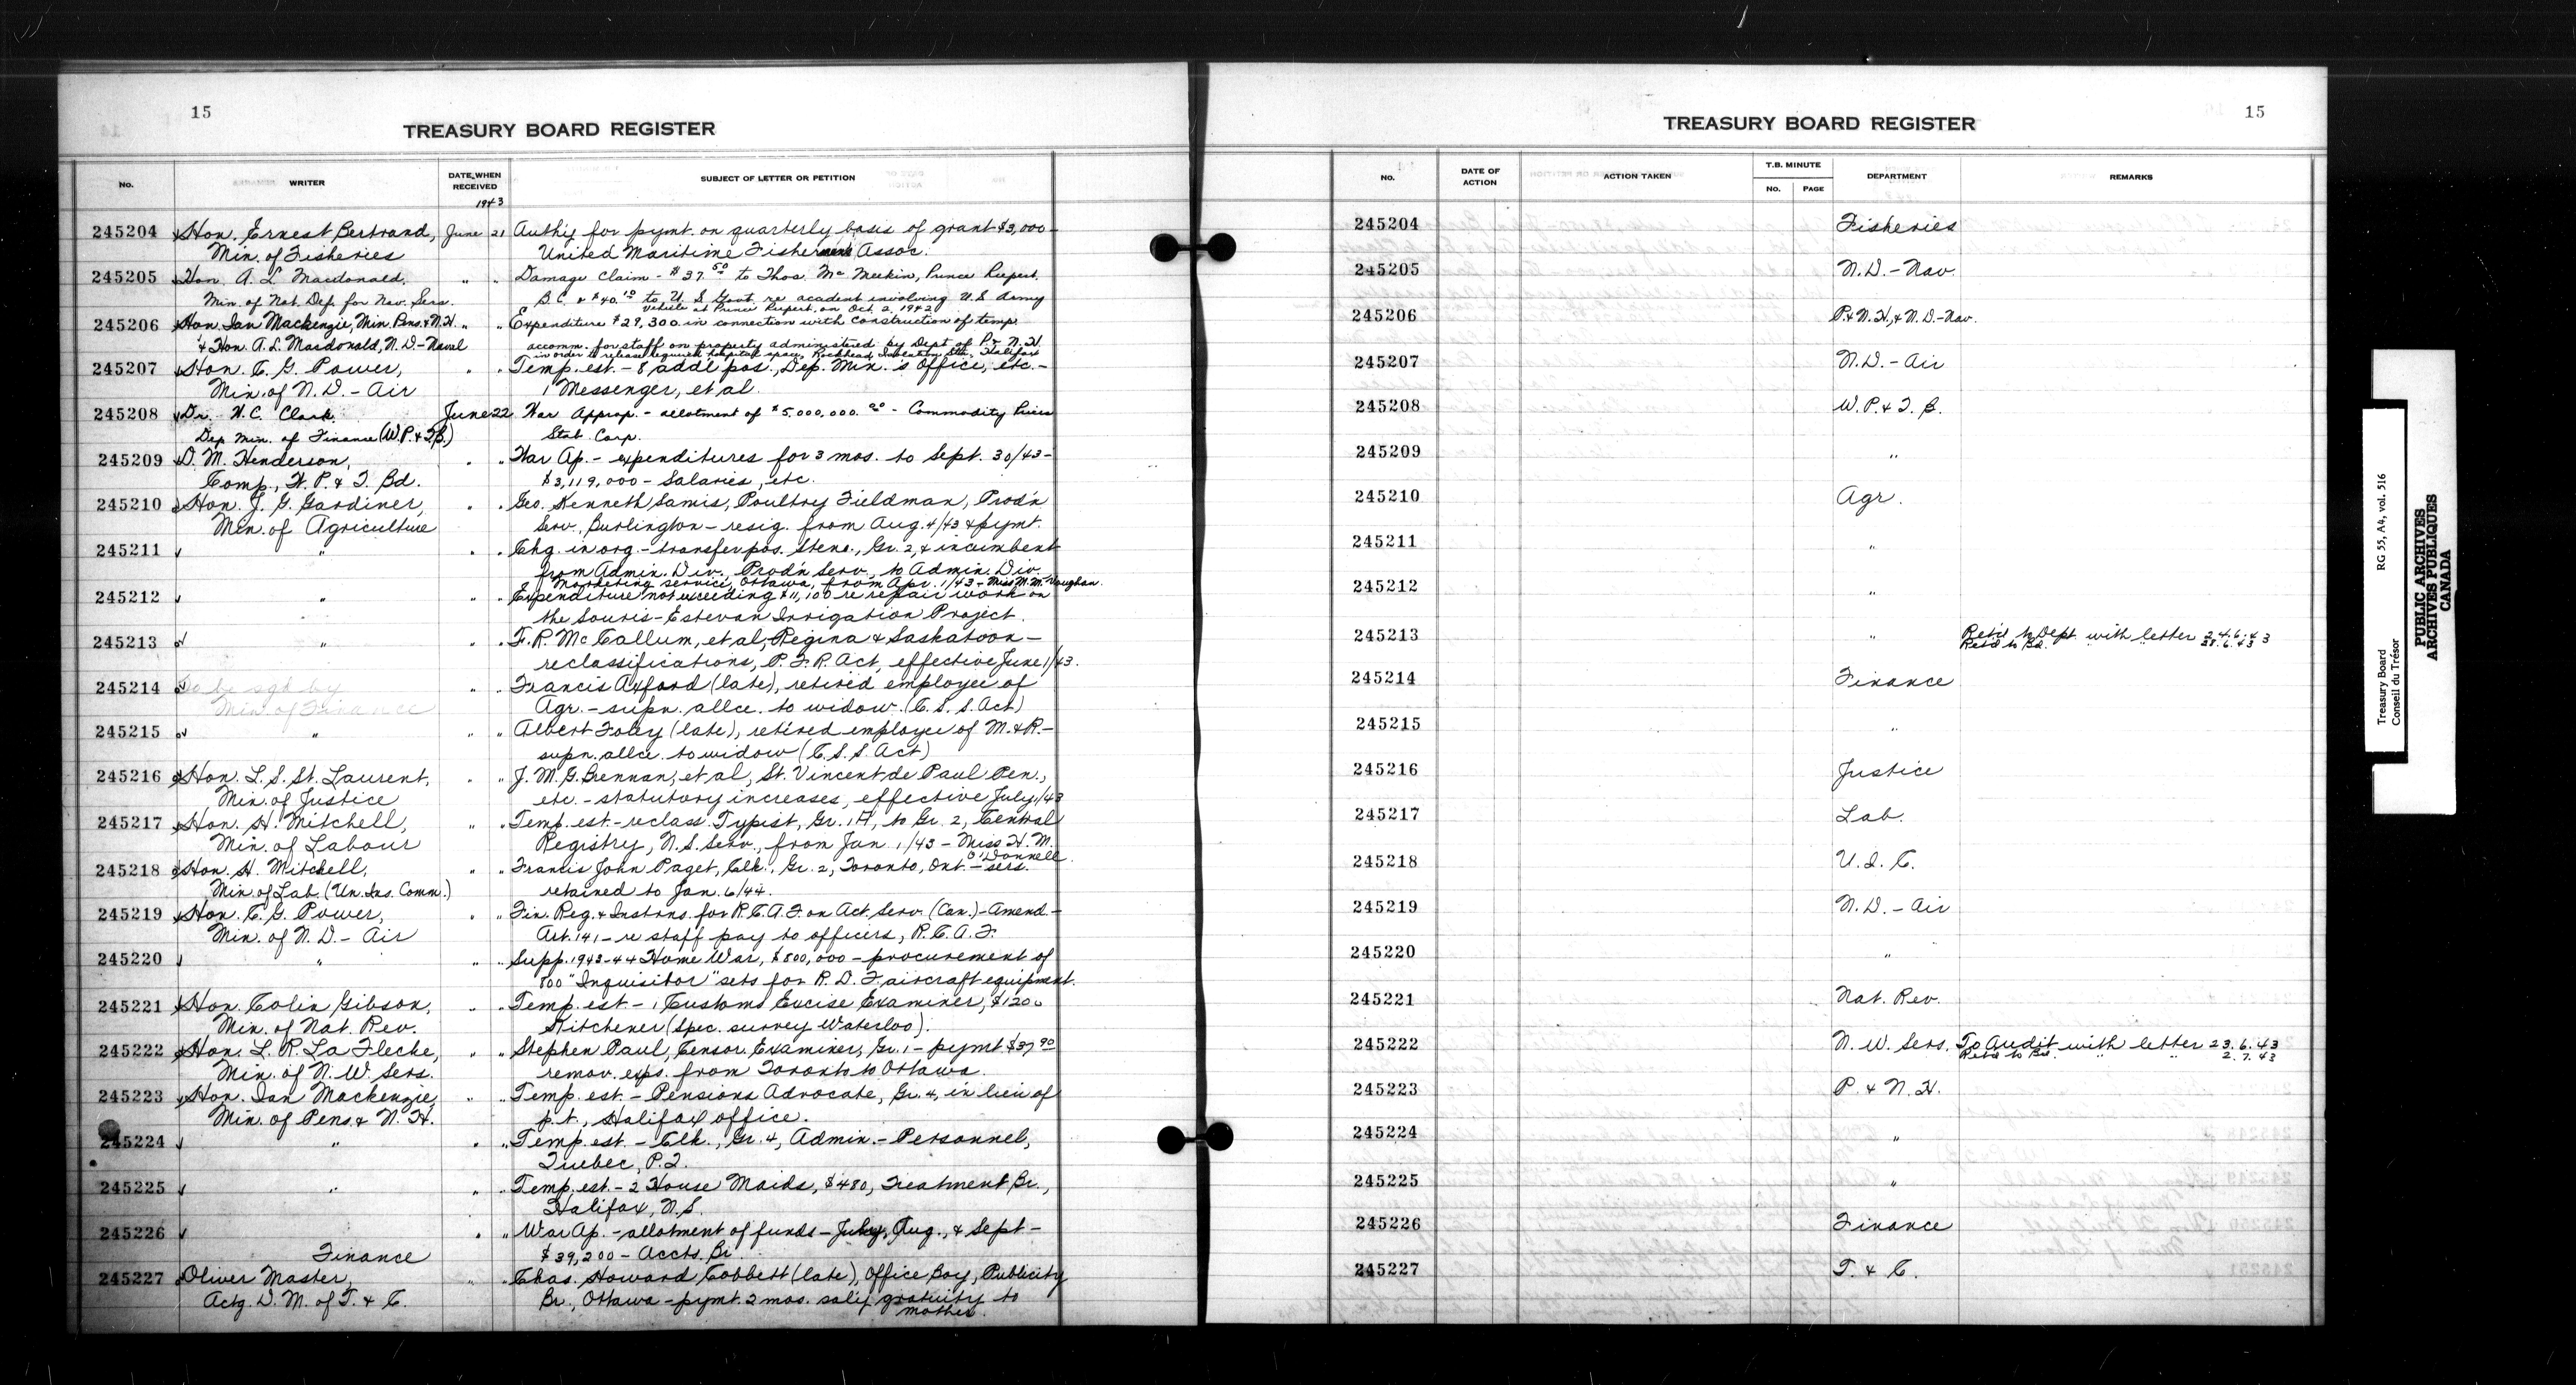 15
TREASURY BOARD REGISTER
No.
WRITER
DATE WHEN RECEIVED
SUBJECT OF LETTER OR PETITION
1943
245204 Hon. Ernest Bertrand, June 21 Authy for pymt. on quarterly basis of grant $3,000-
Min. of Fisheries United Maritime Fishermen's Assoc.
245205 Hon. A. L. Macdonald, " " Damage Claim - $37.50 to Thos. McMeekin, Prince Rupert,
Min. of Nat. Def. for Nav. Sers. B.C. & $40.10 to U.S. Govt. re accident involving U.S. Army
Vehicle at Prince Rupert, on Oct. 2, 1942
245206 Hon. Ian Mackenzie, Min. Pens. & N.H. " " Expenditure $29,300 in connection with construction of temp.
& Hon. A. L. Macdonald, N.D.-Naval accomm. for staff on property administered by Dept of P. & N.H.
in order to release required hospital space, Rockhead Isolation Stn. Halifax
245207 Hon. C. G. Power, " " Temp. est. - 8 addl pos., Dep. Min.'s Office, etc. -
Min. of N.D. - Air 1 Messenger, et al.
245208 Dr. W. C. Clark, June 22 War Approp. - allotment of $5,000,000.00 - Commodity Prices
Dep Min. of Finance (W.P. & T.B.) Stab. Corp.
245209 D. M. Henderson, " " War Ap. - expenditures for 3 mos. to Sept. 30/43 -
Comp., W. P. & T. Bd. $3,119,000 - Salaries, etc.
245210 Hon. J. G. Gardiner, " " Geo. Kenneth Samis, Poultry Fieldman, Prod'n
Min. of Agriculture Serv., Burlington - resig. from Aug. 4/43 & pymt.
245211 " " " Chg. in org. - transfer pos. Steno., Gr. 2, & incumbent
from Admin. Div., Prod'n Serv., to Admin. Div.
Marketing service, Ottawa, from Apr. 1/43 - Miss M. M. Vaughan.
245212 " " " Expenditure not exceeding $11,100 re repair work on
the Souris-Estevan Irrigation Project.
245213 " " " F. R. McCallum, et al, Regina & Saskatoon -
reclassifications, P.F.R. Act, effective June 1/43.
245214 To be sgd by " " Francis Axford (late), retired employee of
Min. of Finance Agr. - supn. allce. to widow. (C.S.S. Act)
245215 " " " Albert Foley (late), retired employee of M. & R. -
supn. allce. to widow (C.S.S. Act)
245216 Hon. L. S. St. Laurent, " " J. M. G. Brennan, et al, St. Vincent de Paul Pen.,
Min. of Justice etc. - statutory increases, effective July 1/43
245217 Hon. H. Mitchell, " " Temp. est. - reclass. Typist, Gr. 1A, to Gr. 2, Central
Min. of Labour Registry, N.S. Serv., from Jan 1/43 - Miss H. M.
O'Donnell
245218 Hon. H. Mitchell, " " Francis John Paget, Clk., Gr. 2, Toronto, Ont. - sers.
Min. of Lab. (Un. Ins. Comm.) retained to Jan. 6/44.
245219 Hon. C. G. Power, " " Fin. Reg. & Instrns. for R.C.A.F. on Act. Serv. (Can.) - Amend. -
Min. of N.D. - Air Art. 141 - re staff pay to officers, R.C.A.F.
245220 " " " Supp. 1943-44 Home War, $800,000 - procurement of
800 "Inquisitor" sets for R.D.F. aircraft equipment.
245221 Hon. Colin Gibson, " " Temp. est. - 1 Customs Excise Examiner, $1200
Min. of Nat. Rev. Kitchener (Spec. survey Waterloo).
245222 Hon. L. R. LaFleche, " " Stephen Paul, Censor Examiner, Gr. 1 - pymt $37.90
Min. of N. W. Sers. remov. exps. from Toronto to Ottawa.
245223 Hon. Ian Mackenzie, " " Temp. est. - Pensions Advocate, Gr. 4, in lieu of
Min. of Pens. & N.H. p.t., Halifax office.
245224 " " " Temp. est. - Clk., Gr. 4, Admin. - Personnel,
Quebec, P.Q.
245225 " " " Temp. est. - 2 House Maids, $480, Treatment Br.,
Halifax, N.S.
245226 " " War Ap. - allotment of funds - July, Aug., & Sept -
Finance $39,200 - Accts. Br.
245227 Oliver Master, " " Chas. Howard Cobbett (late), Office Boy, Publicity
Actg. D. M. of T. & C. Br., Ottawa - pymt. 2 mos. saly gratuity to
mother.
15
TREASURY BOARD REGISTER
No.
DATE OF ACTION
ACTION TAKEN
T.B. MINUTE
No.
PAGE
DEPARTMENT
REMARKS
245204 Fisheries
245205 N.D. - Nav.
245206 P. & N.H., & N.D. - Nav.
245207 N.D. - Air
245208 W. P. & T. B.
245209 "
245210 Agr.
245211 "
245212 "
245213 " Ret'd to Dept. with letter 24.6.43
Ret'd to Bd. " " 28.6.43
245214 Finance
245215 "
245216 Justice
245217 Lab.
245218 U. I. C.
245219 N.D. - Air
245220 "
245221 Nat. Rev.
245222 N. W. Sers. To Audit with letter 23.6.43
Ret'd to Bd. " " 2.7.43
245223 P. & N.H.
245224 "
245225 "
245226 Finance
245227 T. & C.
Treasury Board RG 55, A4, vol. 516
Conseil du Trésor
PUBLIC ARCHIVES
ARCHIVES PUBLIQUES
CANADA